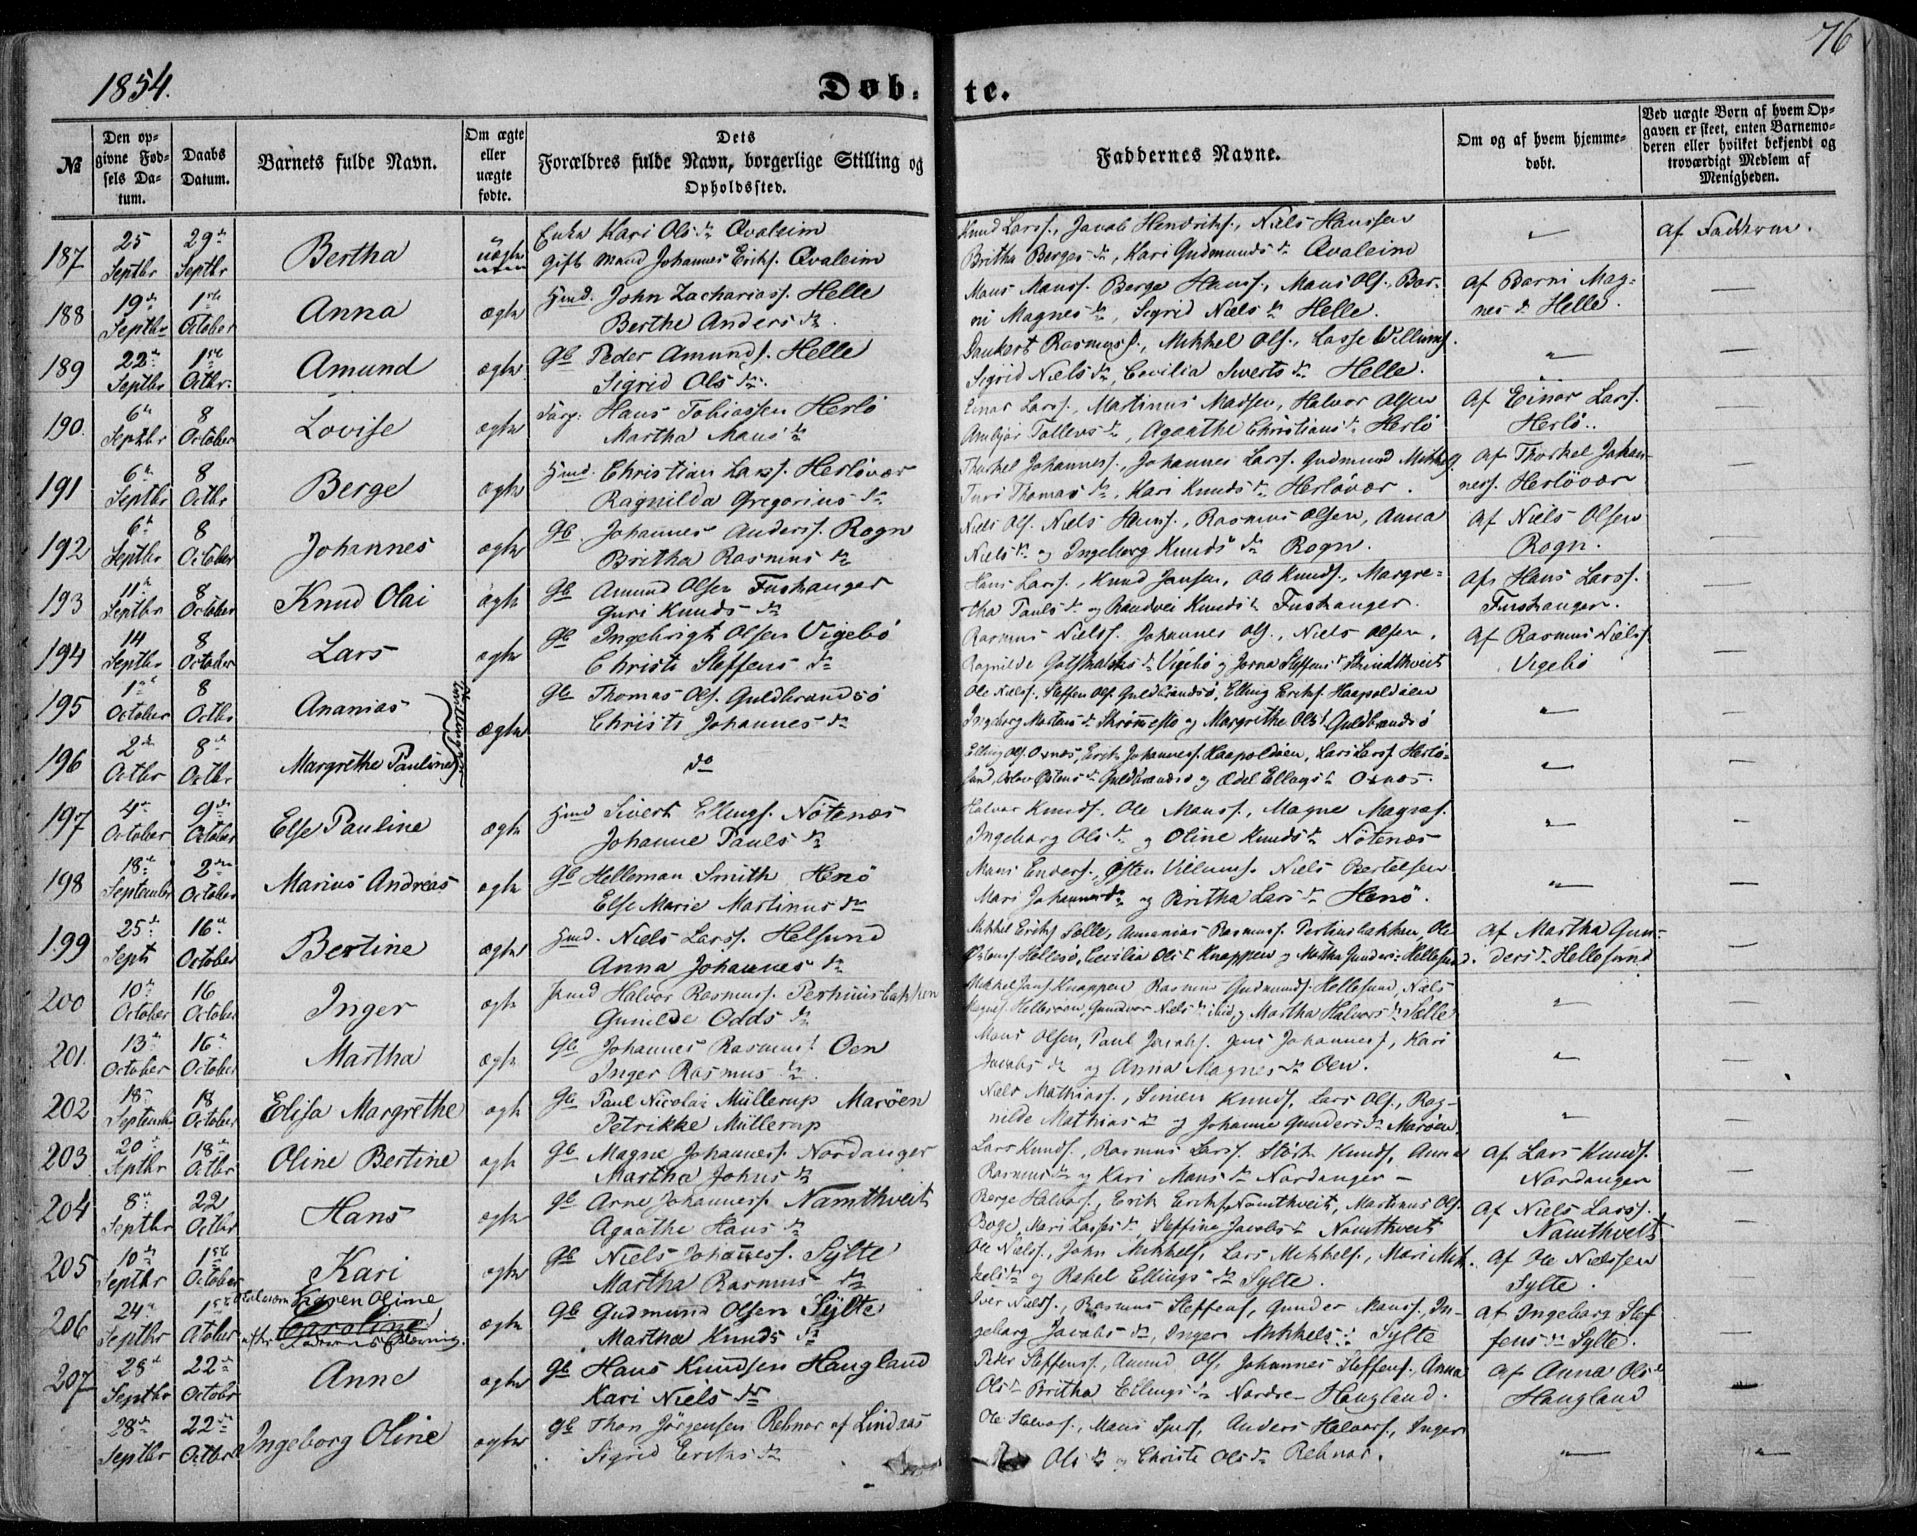 76
1854.
Døb- te.
№
Den opgivne Fødsels Datum.
Daabs Datum.
Barnets fulde Navn.
Om ægte eller uægte fødte.
Dets Forældres fulde Navn, borgerlige Stilling og Opholdssted.
Faddernes Navne.
Om og af hvem hjemmedøbt.
Ved uægte Børn af hvem Opgaven er skeet, enten Barnemoderen eller hvilket bekjendt og troværdigt Medlem af Menigheden.
187 25 Septbr 29 Septbr Bertha uægte Enke Kari Olsdr Qvaleim
Gift Mand Johannes Eriks. Qvaleim
Knud Larss., Jacob Hendriks., Niels Hanssen
Britha Bergesdr, Kari Gudmundsdr Qvaleim
af Fadderne.
188 19de Septbr 1ste October Anna ægte Hmd. John Zachariass. Helle
Berthe Andersdr
Mons Monss. Berge Hanss., Mons Ols., Barni Magnesdr, Sigrid Nielsdr Helle.
af Barni Magnesdr Helle.
189 22de Septbr 1ste Octbr. Amund ægte Gb Peder Amunds. Helle
Sigrid Olsdr.
Dankert Rasmuss., Mikkel Ols., Lasse Villums.
Sigrid Nielsdr, Cecilia Siverts dr Helle.
190. 6te Septbr 8 October Lovise ægte Hans Tobiassen Herlö
Martha Monsdr
Einar Larss., Martinus Madsen, Halvor Olsen
Tollevsdr, Agaathe Christiansdr Herlö
af Einar Larss.
Herlö.
191 6te Septbr 8 Octbr Berge ægte Hmd. Christian Larss. Herlövær
Ragnilda Gregoriusdr
Thorkel Johanness., Johannes Larss. Gudmund Mikkels.
Turi Thomasdr, Kari Knudsdr Herlövær.
af Thorkel Johanness. Herlövær
192 6te Septbr 8 October Johannes ægte Gb. Johannes Anderss. Rogn
Britha Rasmusdr
Niels Ols. Niels Hanss., Rasmus Olsen, Anna
Nielsdr og Ingeborg Knudsdr Rogn.
af Niels Olsen
Rogn.
193 11te Septbr 8 October Knud Olai ægte Gb Amund Olsen Fushanger
Guri Knudsdr
Hans Larss., Knud Jansen, Ole Knuds., Margretha Paulsdr og Randvei Knudsdr Fushanger.
af Hans Larss.
Fushanger.
194 14 Septbr 8 October Lars ægte Gb Ingebrigt Olsen Vigebö
Christi Steffensdr
Rasmus Nielss. Johannes Ols., Niels Olsen,
Ragnilde Gotskalksdr Vigebö og Jorna Steffensdr
af Rasmus Nielss.
Vigebö
195 1ste October 8 Octbr Ananias ægte Gb Thomas Ols. Guldbrandsö
Christi Johannesdr
Ole Nielss., Steffen Ols. Guldbrandsö, Elling Eriks. Haapoldöen
Ingeborg Monsdr og Margrethe Olsdr Guldbrandsö
Tvillinger
196 2den Octbr 8de Octbr Margrethe Pauline do
Elling Ols. Osnæs, Erik Johanness. Haapoldöen, Lars Larss. Herlösund, Guldbrandsö og Ædel Ellingsdr Osnæs.
197 4de October 9de October Else Pauline ægte Hmd Sivert Ellings. Nötenæs
Johanne Paulsdr
Halvor Knuds. Ole Monss., Magne Magnes.
Ingeborg Olsdr og Oline Knudsdr Nötenæs
198 18de September 2den October Marius Andreas ægte Gb Helleman Smith Henö
Else Marie Martinusdr
Mons Enders., Östen Villums. Niels Bertelsen
Mari Johannesdr og Britha Larsdr Henö.
199 25de Septr 16de October Bertine ægte Hmd. Niels Larss. Helsund
Anna Johannesdr
Mikkel Eriks. Sælle, Annanias Rasmuss. Ole
Hellesö, Cecilia Olsdr Knappen og Martha Gundersdr Hellesund.
af Martha Gundersdr Hellesund
200 10de October 16 October Inger ægte Hmd Halvor Rasmuss. Perhuusbakken
Gunilde Oddsdr
Mikkel Jans. Knappen Rasmus Gudmunds. Hellesund, Niels
Magnes. Hellesöen, Gundvor Nielsdr ibid, og Martha Halvorsdr Sælle
201. 13de October 16de October Martha ægte Gb Johannes Rasmuss. Oen
Inger Rasmusdr.
Mons Olsen, Paul Jacobs. Jens Johanness., Kari
Jacobsdr og Anna Magnesdr Oen.
202 18de September 18 October Elisa Margrethe ægte Gb Paul Nicolai Müllerup Maröen
Petrikke Müllerup
Niels Mathiass., Simen Knuds., Lars Ols., Ragnilde Mathiasdr og Johanne Gundersdr Maröen.
203 20de Septbr 18de Octbr Oline Bertine ægte Gb Magne Johanness. Nordanger
Martha Johnsdr
Lars Knuds., Rasmus Larss. Störk Knuds., Anna
Rasmusdr og Kari Monsdr Nordanger
af Lars Knuds.
Nordanger
204 8de Septbr 22 Octbr Hans ægte Gb Arne Johanness. Namthveit
Agaathe Hansdr
Berge Halvors., Erik Eriks. Namthveit, Martinus Ols.
Boge, Mari Larsdr Steffine Jacobsdr Namthveit
af Niels Larss.
Namthveit
205 10de Septbr 1ste October Kari ægte Gb Niels Johaness. Sylte
Martha Rasmusdr
Ole Nielss., John Mikkels., Lars Mikkels., Mari Mikkelsdr og Rakel Ellingsdr Sylte.
af Ole Nielssen
Sylte.
206 24de Septbr 1ste October Karen Oline
Caroline
efter Faderens
ægte Gb Gudmund Olsen Sylte
Martha Knudsdr
Iver Nielss., Rasmus Steffens., Gunder Monss. Ingeborg Jacobsdr, Inger Mikkelsdr Sylte
af Ingeborg Steffensdr Sylte.
207 28de Septbr 22de Octobr Anne ægte Gb Hans Knudsen Haugland
Kari Nielsdr
Peder Steffens., Amund Ols., Johannes Steffens., Anna
Olsdr Britha Ellingsdr Nordre Haugland.
af Anna Olsdr
Haugland
28de Septbr 22de Octbr Ingeborg Oline ægte Gb Thon Jörgensen Rebnor af Lindaas
Sigrid Eriksdr
Ole Halvors., Mons Anders Halvors., Inger
Olsdr og Christi Olsdr Rebnor.